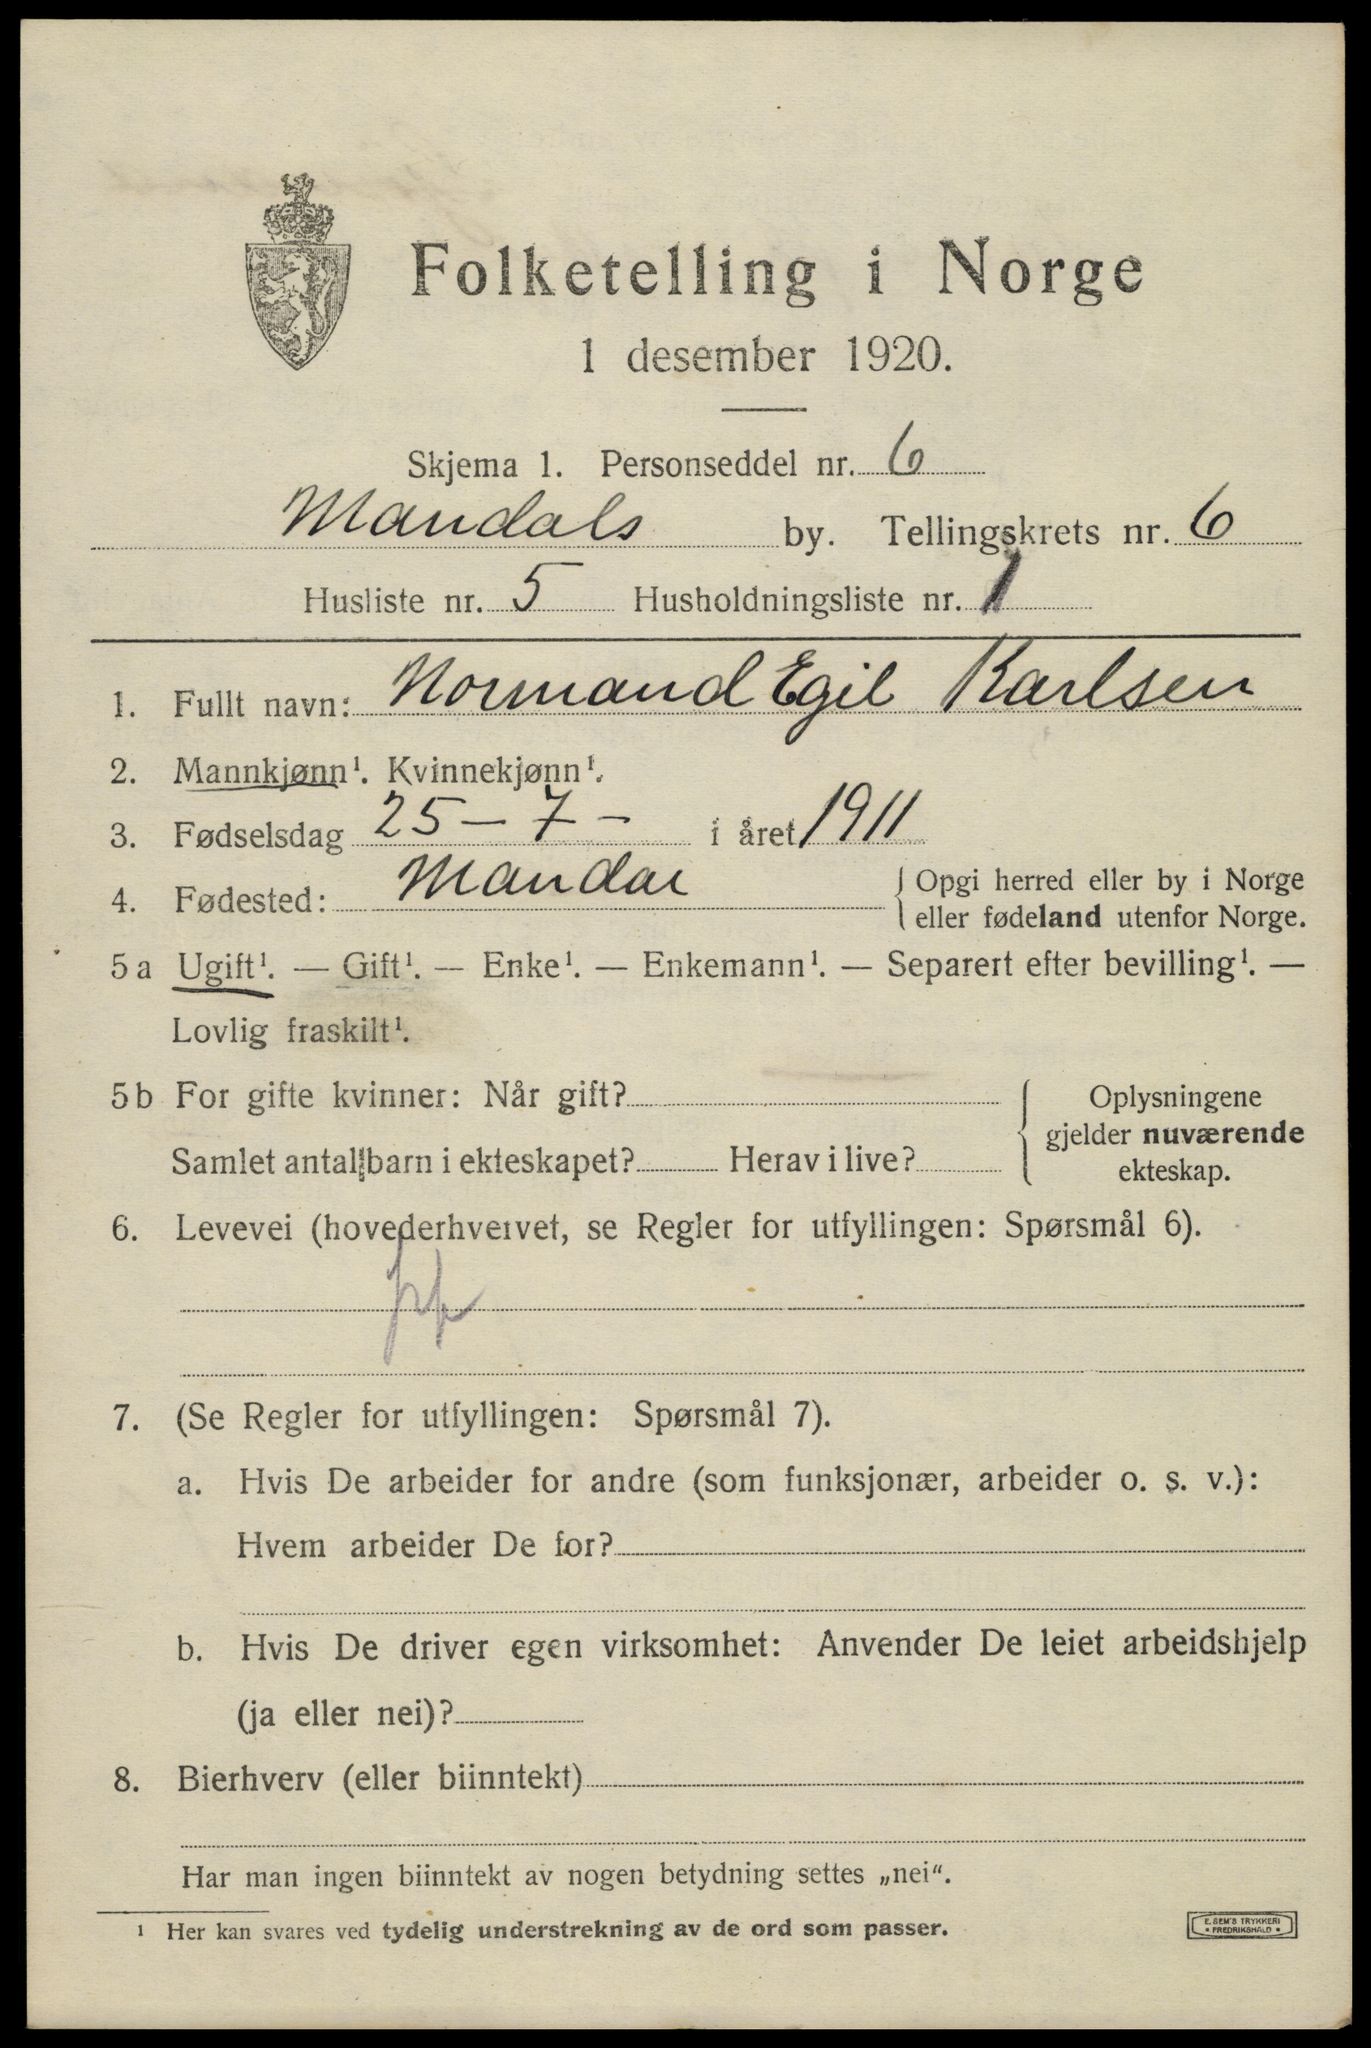 Folketelling i Norge
1 desember 1920.
Skjema 1. Personseddel nr. 6
Mandals by. Tellingskrets nr. 6
Husliste nr. 5 Husholdningsliste nr. 1
1. Fullt navn: Normand Egil Karlsen
2. Mannkjønn¹. Kvinnekjønn¹.
3. Fødselsdag 25 - 7 - i året 1911
4. Fødested: Mandal { Opgi herred eller by i Norge
eller fødeland utenfor Norge.
5 a Ugift¹. — Gift¹. — Enke¹. — Enkemann¹. — Separert efter bevilling¹. —
Lovlig fraskilt¹.
5 b For gifte kvinner: Når gift? { Oplysningene
gjelder nuværende
Samlet antall barn i ekteskapet? Herav i live?
ekteskap.
6. Levevei (hovederhvervet, se Regler for utfyllingen: Spørsmål 6).
7. (Se Regler for utfyllingen: Spørsmål 7).
a. Hvis De arbeider for andre (som funksjonær, arbeider o. s. v.):
Hvem arbeider De for?
b. Hvis De driver egen virksomhet: Anvender De leiet arbeidshjelp
(ja eller nei)?
8. Bierhverv (eller biinntekt)
Har man ingen biinntekt av nogen betydning settes „nei“.
¹ Her kan svares ved tydelig understrekning av de ord som passer.
E. SEM'S TRYKKERI
• FREDRIKSHALD •